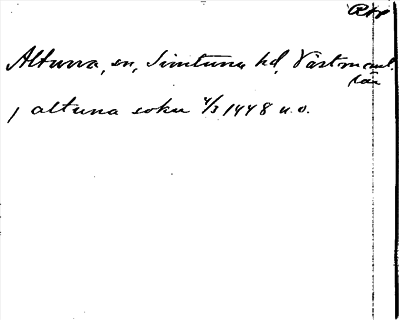 RAp
Altuna, sn, Simtuna hd, Västmanl.
län
j altuna sokn 4/3 1448 u.o.